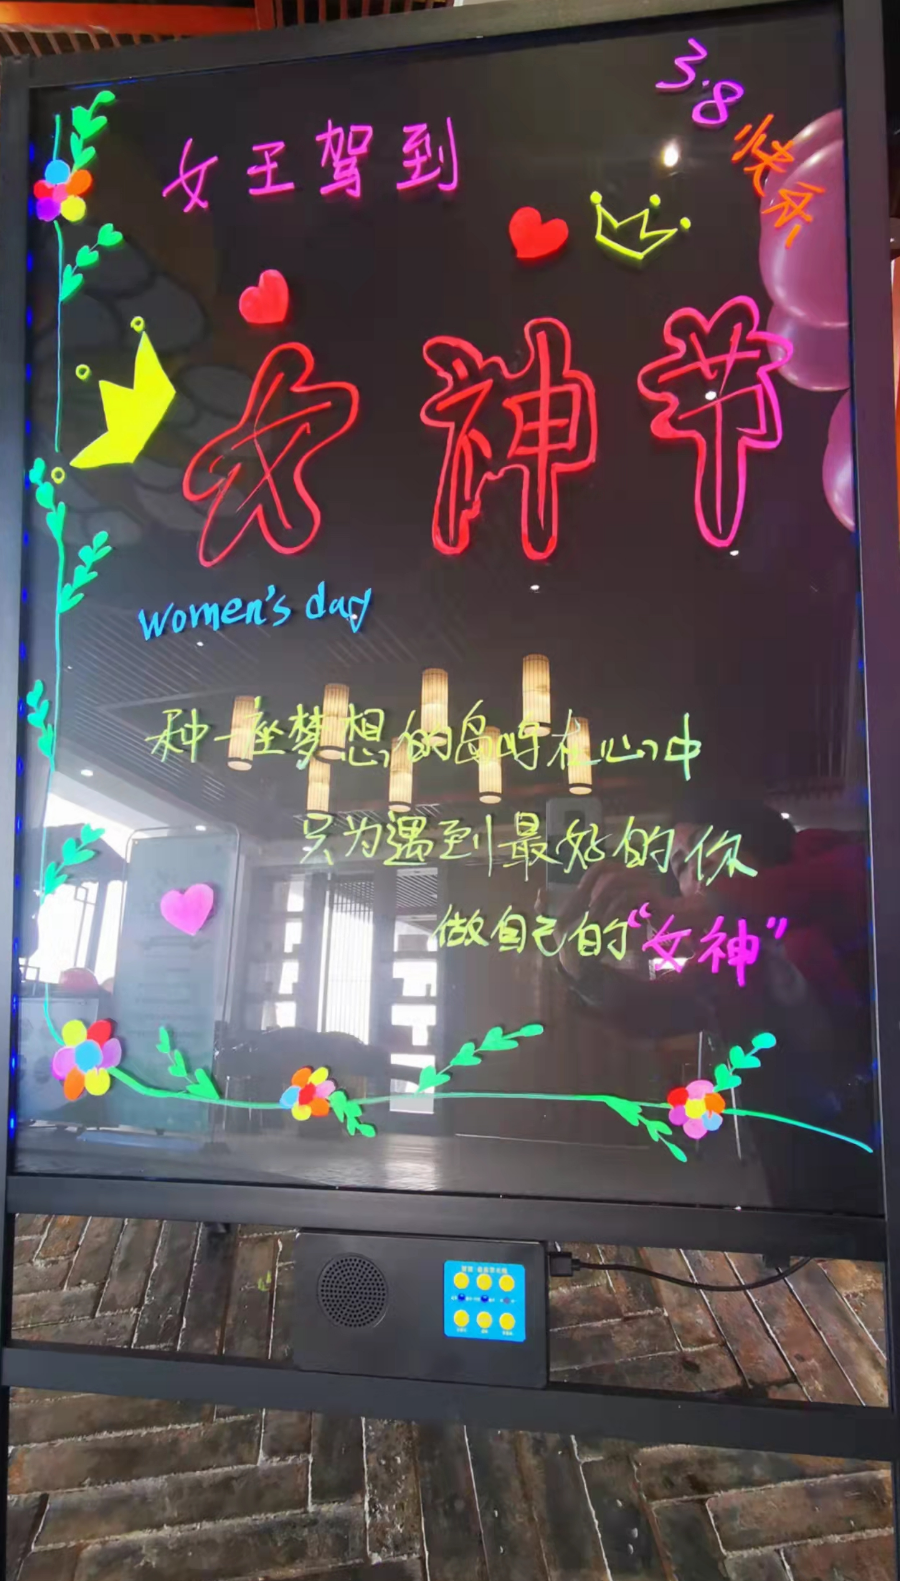 3.8
快乐
女王驾到
女神节
women's day
种一座梦想的岛屿在心中
只为遇到最好的你
做自己的“女神”